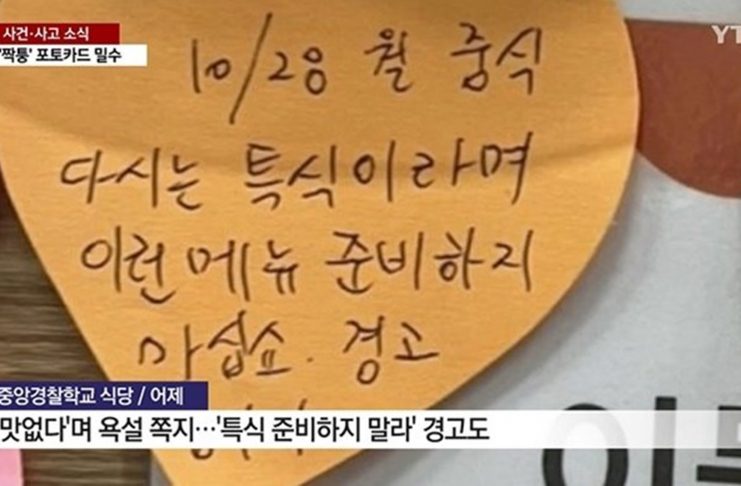 사건·사고 소식
'짝퉁' 포토카드 밀수
YT
10/28 월 중식
다시는 특식이라며
이런 메뉴 준비하지
마십쇼. 경고
중앙경찰학교 식당 / 어제
맛없다'며 욕설 쪽지…'특식 준비하지 말라' 경고도